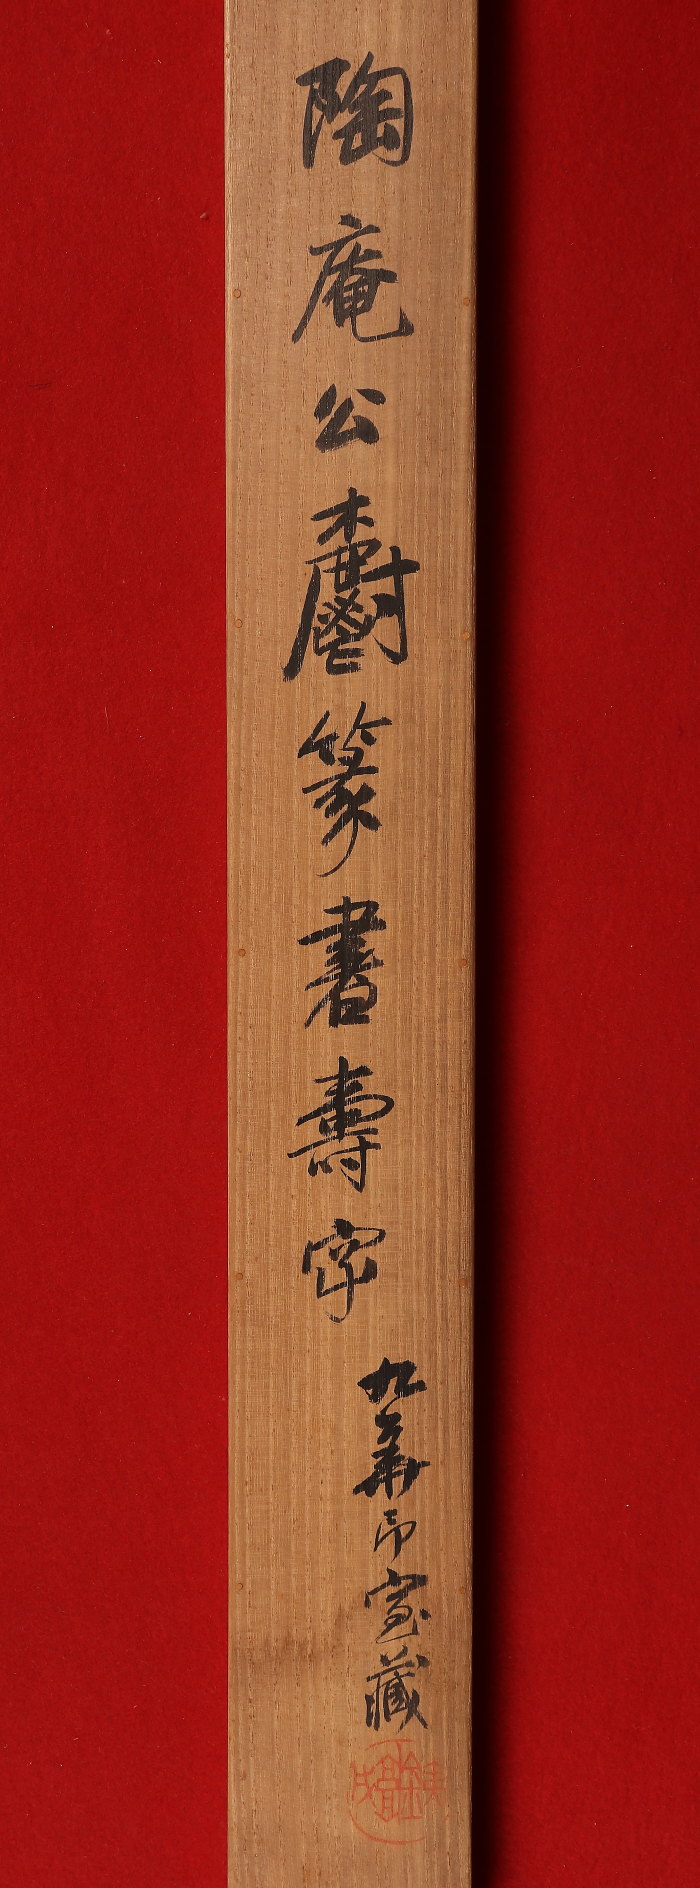 陶庵公篆書壽字
九華印室藏